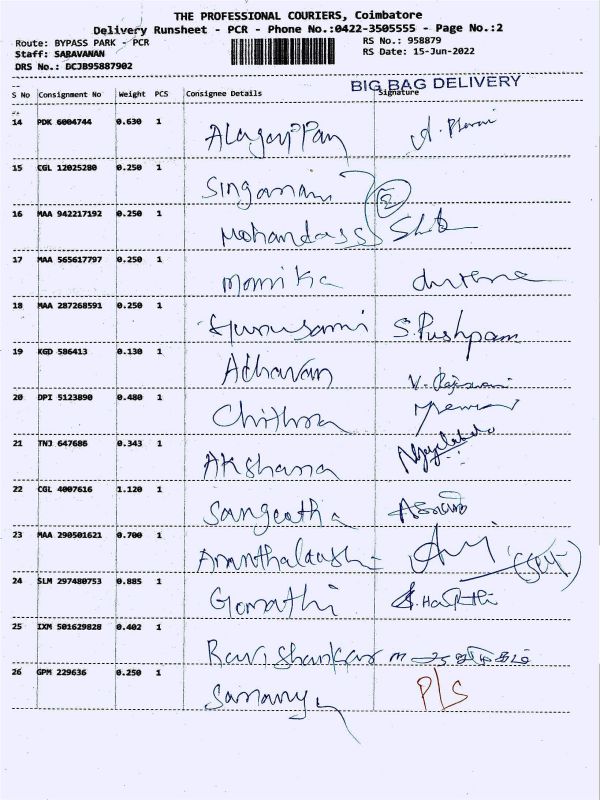 THE PROFESSIONAL COURIERS, Coimbatore
Delivery Runsheet - PCR - Phone No.:0422-3505555 - Page No.:2
Route: BYPASS PARK - PCR RS No.: 958879
Staff: SARAVANAN RS Date: 15-Jun-2022
DRS No.: DCJB95887902
BIG BAG DELIVERY
S No Consignment No Weight PCS Consignee Details Signature
14 PDK 6004744 0.630 1 Alagappan
15 CGL 12025280 0.250 1 Singamani
16 MAA 942217192 0.250 1 Mohandass
17 MAA 565617797 0.250 1 monika
18 MAA 287268591 0.250 1 Gurusami S. Pushpam
19 KGD 586413 0.130 1 Adhavan
20 DPI 5123890 0.480 1 Chithra
21 TNJ 647686 0.343 1 Akshana
22 CGL 4007616 1.120 1 Sangeetha
23 MAA 290501621 0.700 1 (Self)
24 SLM 297480753 0.885 1 Gomathi
25 IXM 501629828 0.402 1 Ravi Shankar
26 GPM 229636 0.250 1 P/S